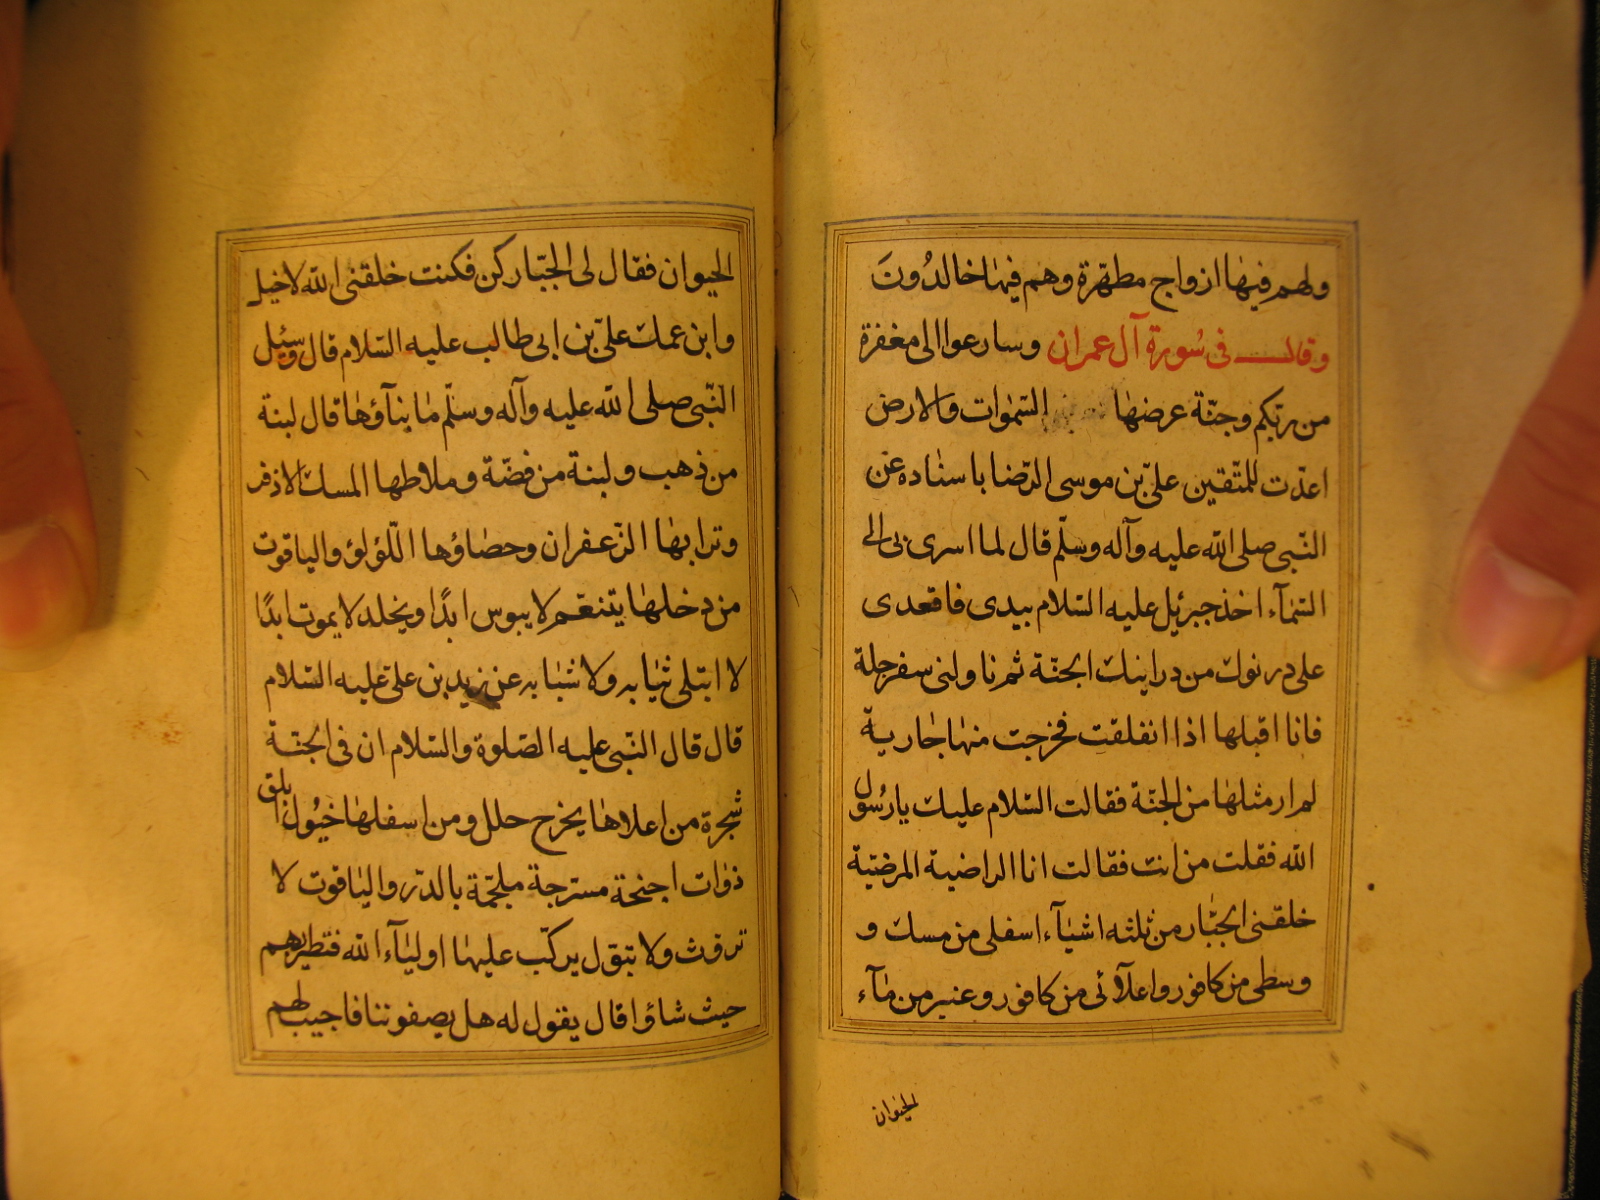 ولهم فيها ازواج مطهّرة وهم فيها خالدُونَ
وقال في سُورة آل عمران وسارعوا الى مغفرة
من ربّكم وجنّة عرضها السّموات والارض
اعدّت للمتّقين علىّ بن موسى الرّضا باسناده عن
النّبى صلى الله عليه وآله وسلّم قال لما اسرى بى الى
السّمآء اخذ جبرئيل عليه السّلام بيدى فاقعدى
على درنوك من درانيك الجنّة ثم ناولنى سفرجلة
فانا اقبلها اذا انفلقت فخرجت منها جارية
لم ار مثلها من الجنّة فقالت السّلام عليك يا رسُول
الله فقلت من انت فقالت انا الراضية المرضيّة
خلقنى الجبّار من ثلثه اشيآء اسفلى من مسك و
وسطى من كافور واعلائى من كافور وعنبر من مآء
الحيوان
الحيوان فقال لى الجبّار كن فكنت خلقنى الله لاخيك
وابن عمك علىّ بن ابى طالب عليه السّلام قال وسئل
النّبى صلى الله عليه وآله وسلّم ما بنآؤها قال لبنة
من ذهب ولبنة من فضّة وملاطها المسك الاذفر
وترابها الزّعفران وحصاؤها اللّؤلؤ والياقوت
من دخلها يتنعّم لا يبوس ابدًا ويخلد لا يموت ابدًا
لا ابتلى ثيابه ولا شبابه عن زيد بن على عليه السّلام
قال قال النّبى عليه الصّلوة والسّلام ان فى الجنّة
شجرة من اعلاها يخرج حلل ومن اسفلها خيُول ابلق
ذوات اجنحة مسرّجة ملجمّة بالدّر والياقوت لا
تروث ولا تبول يركّب عليها اوليآء الله فتطيرهم
حيث شاؤا قال يقول له هل يصفوننا فاجيب لهم